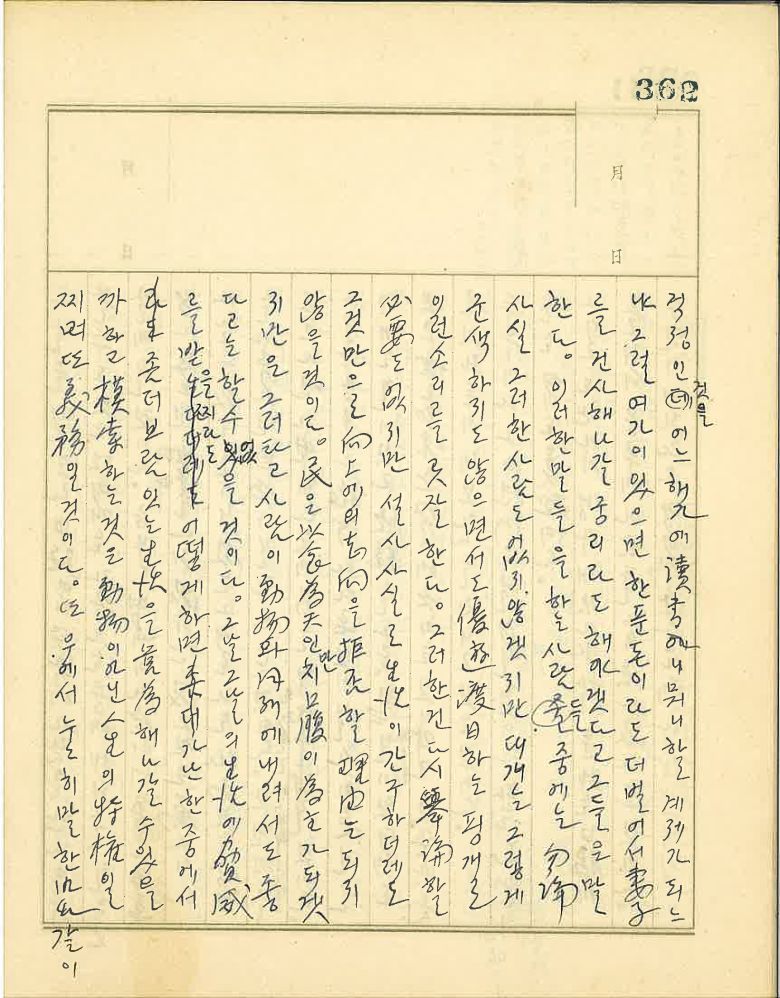 362
月
日
걱정인 것을 어느 해가에 讀書이니 뭐니 할 계제가 되느
냐 그럴 여가이 있으면 한푼돈이라도 더벌어서 妻子
를 건사해나갈 궁리라도 해야겠다고 그들은 말
한다. 이러한말들을 하는 사람들 중에는 勿論
사실 그러한사람도 없지않겠지만 대개는 그렇게
군색하지도 않으면서도 優遊渡日하는 핑개로
이런소리를 곳잘한다. 그러한건 다시 擧論할
必要도 없지만 설사 사실로 生活이 간구하더래도
그것만으로 向上에의 志向을 拒否할 理由는 되지
않을것이다. 民은 以食為天인만치 口腹이 為主가 되겠
지만은 그러타고 사람이 動物과 같은
다고는 할수 없을 것이다. 그날그날의 生活에 脅威
를 받을찌라도 어떻게 하면 가난한 중에서
좀더 보람있는 生活을 営為해나갈 수있을
까하고 摸索하는것은 動物이 아닌 人生의 特権일
찌며 또 義務일것이다. 또 우에서 눌히말한바와 같이